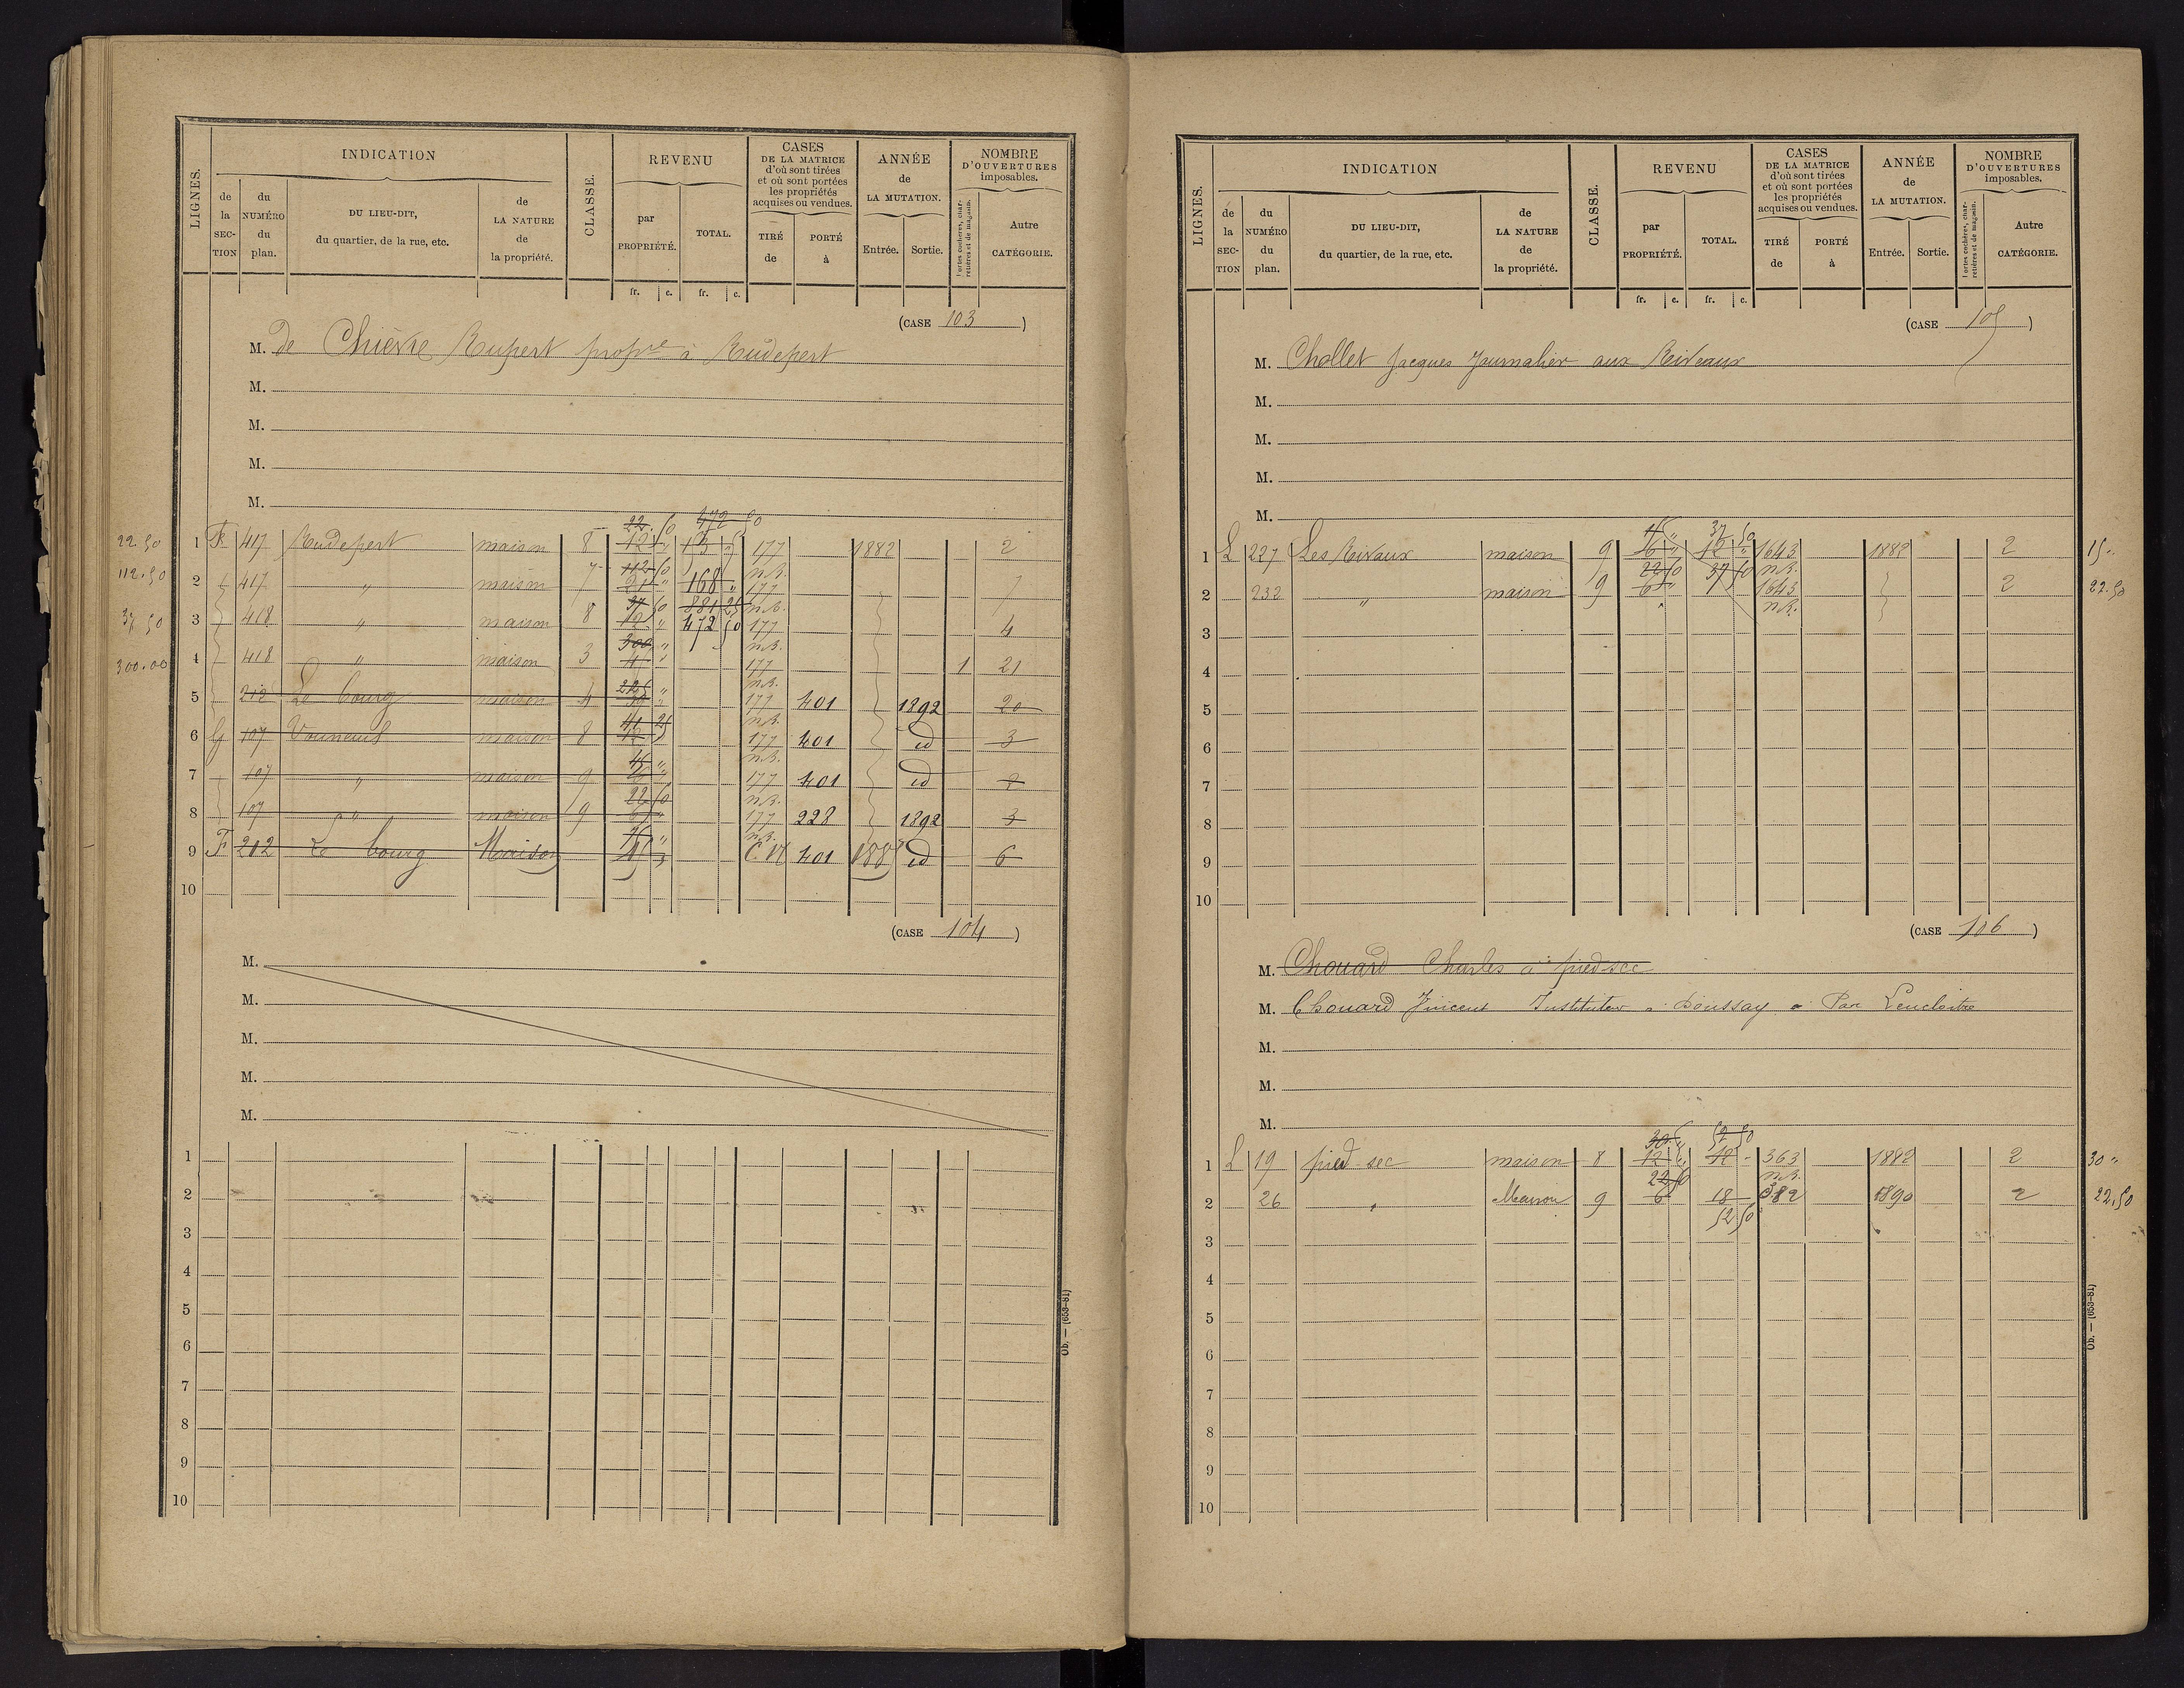 LIGNES.
INDICATION
CLASSE.
REVENU
CASES
DE LA MATRICE
d'où sont tirées
et où sont portées
les propriétés
acquises ou vendues.
ANNÉE
de
LA MUTATION.
NOMBRE
D'OUVERTURES
imposables.
de la SECTION
du NUMÉRO du plan.
DU LIEU-DIT,
du quartier, de la rue, etc.
de LA NATURE de la propriété.
par PROPRIÉTÉ.
TOTAL.
TIRÉ de
PORTÉ à
Entrée.
Sortie.
Portes cochères, charretières et de magasin.
Autre CATÉGORIE.
fr. c. fr. c.
(CASE 103)
M. de Chièvre Rupert propre à Rudepert
M.
M.
M.
M.
22 50 472 50
22.50 1 F. 417 Rudepert maison 8 12 " 177 1882 2
112.50 112 50 n.R.
2 417 " maison 7 21 " 168 " 177 7
37 50 881 25 n.R.
37 50 3 418 " maison 8 12 " 472 50 177 4
300 " n.R.
300.00 4 418 " maison 3 177 1 21
225 " n.R.
5 212 Le bourg maison 4 177 401 1892 20
41 25 n.R.
6 G 107 Vouneuil maison 8 177 401 id 3
n.R.
7 107 " maison 9 177 401 id 2
22 50 n.R.
8 107 " maison 9 6 177 228 1892 3
n.R.
9 F 212 Le bourg Maison 401 id 6
10
(CASE 104)
M.
M.
M.
M.
M.
1
2
3
4
5
6
7
8
9
10
Ob. — (653-81)
LIGNES.
INDICATION
CLASSE.
REVENU
CASES
DE LA MATRICE
d'où sont tirées
et où sont portées
les propriétés
acquises ou vendues.
ANNÉE
de
LA MUTATION.
NOMBRE
D'OUVERTURES
imposables.
de la SECTION
du NUMÉRO du plan.
DU LIEU-DIT,
du quartier, de la rue, etc.
de LA NATURE de la propriété.
par PROPRIÉTÉ.
TOTAL.
TIRÉ de
PORTÉ à
Entrée.
Sortie.
Portes cochères, charretières et de magasin.
Autre CATÉGORIE.
fr. c. fr. c.
(CASE 105)
M. Chollet Jacques Journalier aux Riveaux
M.
M.
M.
M.
15 " 37 50
1 L 227 Les Rivaux maison 9 6 " 12 " 1643 1882 2 15 "
22 50 37 50 n.R.
2 232 " maison 9 6 " 1643 2 22.50
n.R.
3
4
5
6
7
8
9
10
(CASE 106)
M. Chouard Charles à pied sec
M. Chouard Vincent Instituteur à Doussay à Par Lencloitre
M.
M.
M.
30 " 52 50
1 L 19 pied sec maison 8 12 " 12 - 363 1882 2 30 "
22 50 n.R.
2 26 " Maison 9 6 18 382 1890 2 22.50
52 50
3
4
5
6
7
8
9
10
Ob. — (653-81)